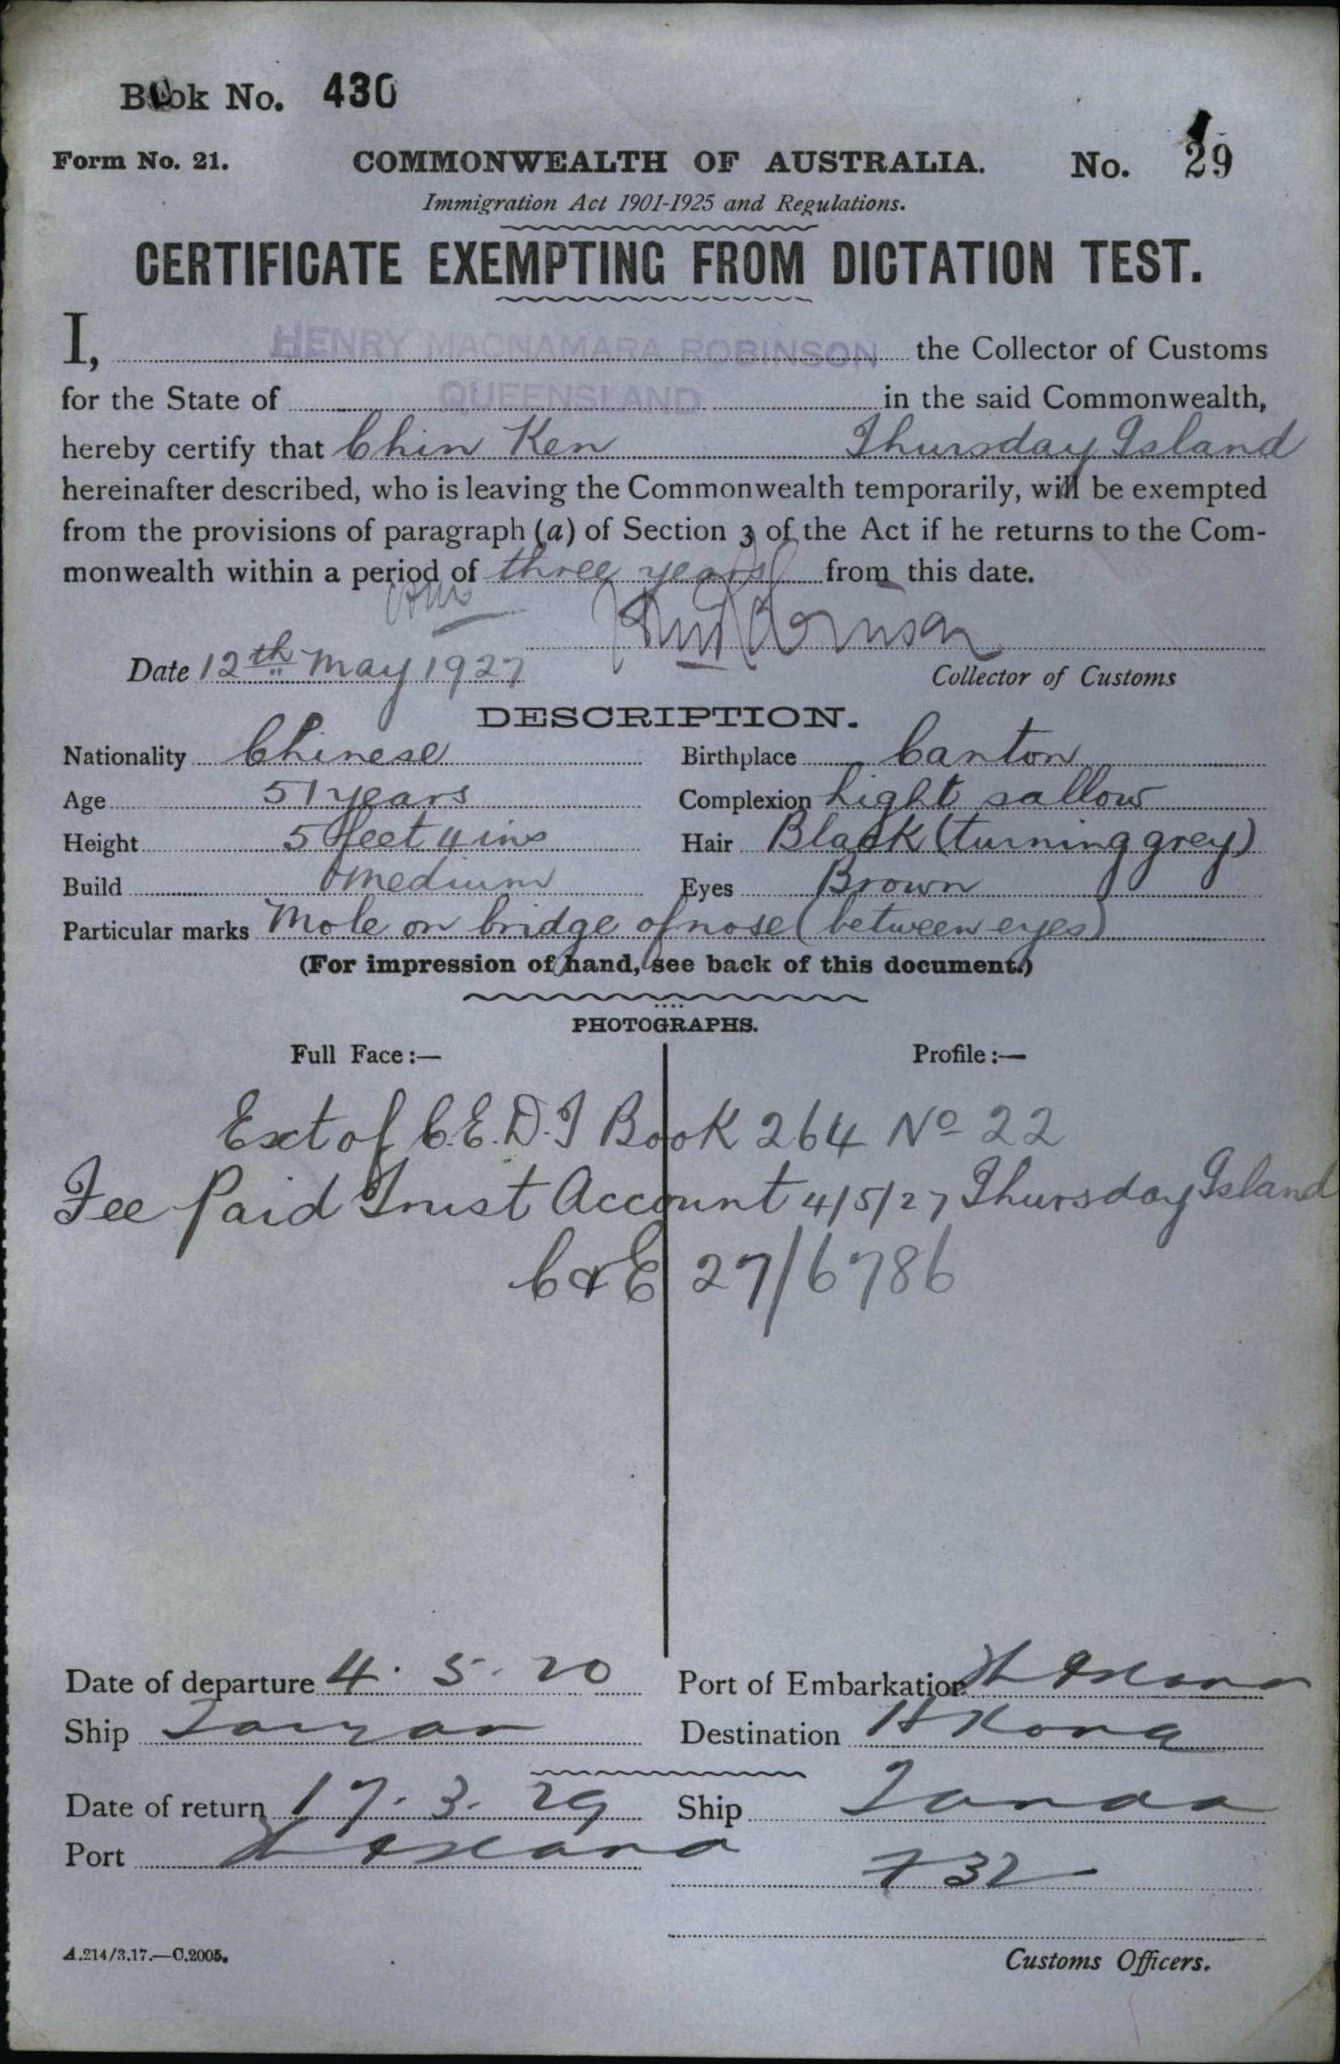 Book No. 430
Form No. 21. COMMONWEALTH OF AUSTRALIA. No. 29
Immigration Act 1901-1925 and Regulations.
CERTIFICATE EXEMPTING FROM DICTATION TEST.
I, HENRY MACNAMARA ROBINSON the Collector of Customs
for the State of QUEENSLAND in the said Commonwealth,
hereby certify that Chin Ken Thursday Island
hereinafter described, who is leaving the Commonwealth temporarily, will be exempted
from the provisions of paragraph (a) of Section 3 of the Act if he returns to the Com-
monwealth within a period of three years from this date.
Date 12th May 1927 Collector of Customs
DESCRIPTION.
Nationality Chinese Birthplace Canton
Age 51 years Complexion Light sallow
Height 5 feet 4 ins Hair Black (turning grey)
Build medium Eyes Brown
Particular marks Mole on bridge of nose (between eyes)
(For impression of hand, see back of this document.)
PHOTOGRAPHS.
Full Face:— Profile:—
Ext of C.E.D.T Book 264 No 22
Fee Paid Trust Account 4/5/27 Thursday Island
C & E 27/6786
Date of departure 4. 5. 20 Port of Embarkation Th Island
Ship Taiyuan Destination H Kong
Date of return 17. 3. 29 Ship Tanda
Port Th Island
732
A.214/3.17.—C.2005. Customs Officers.